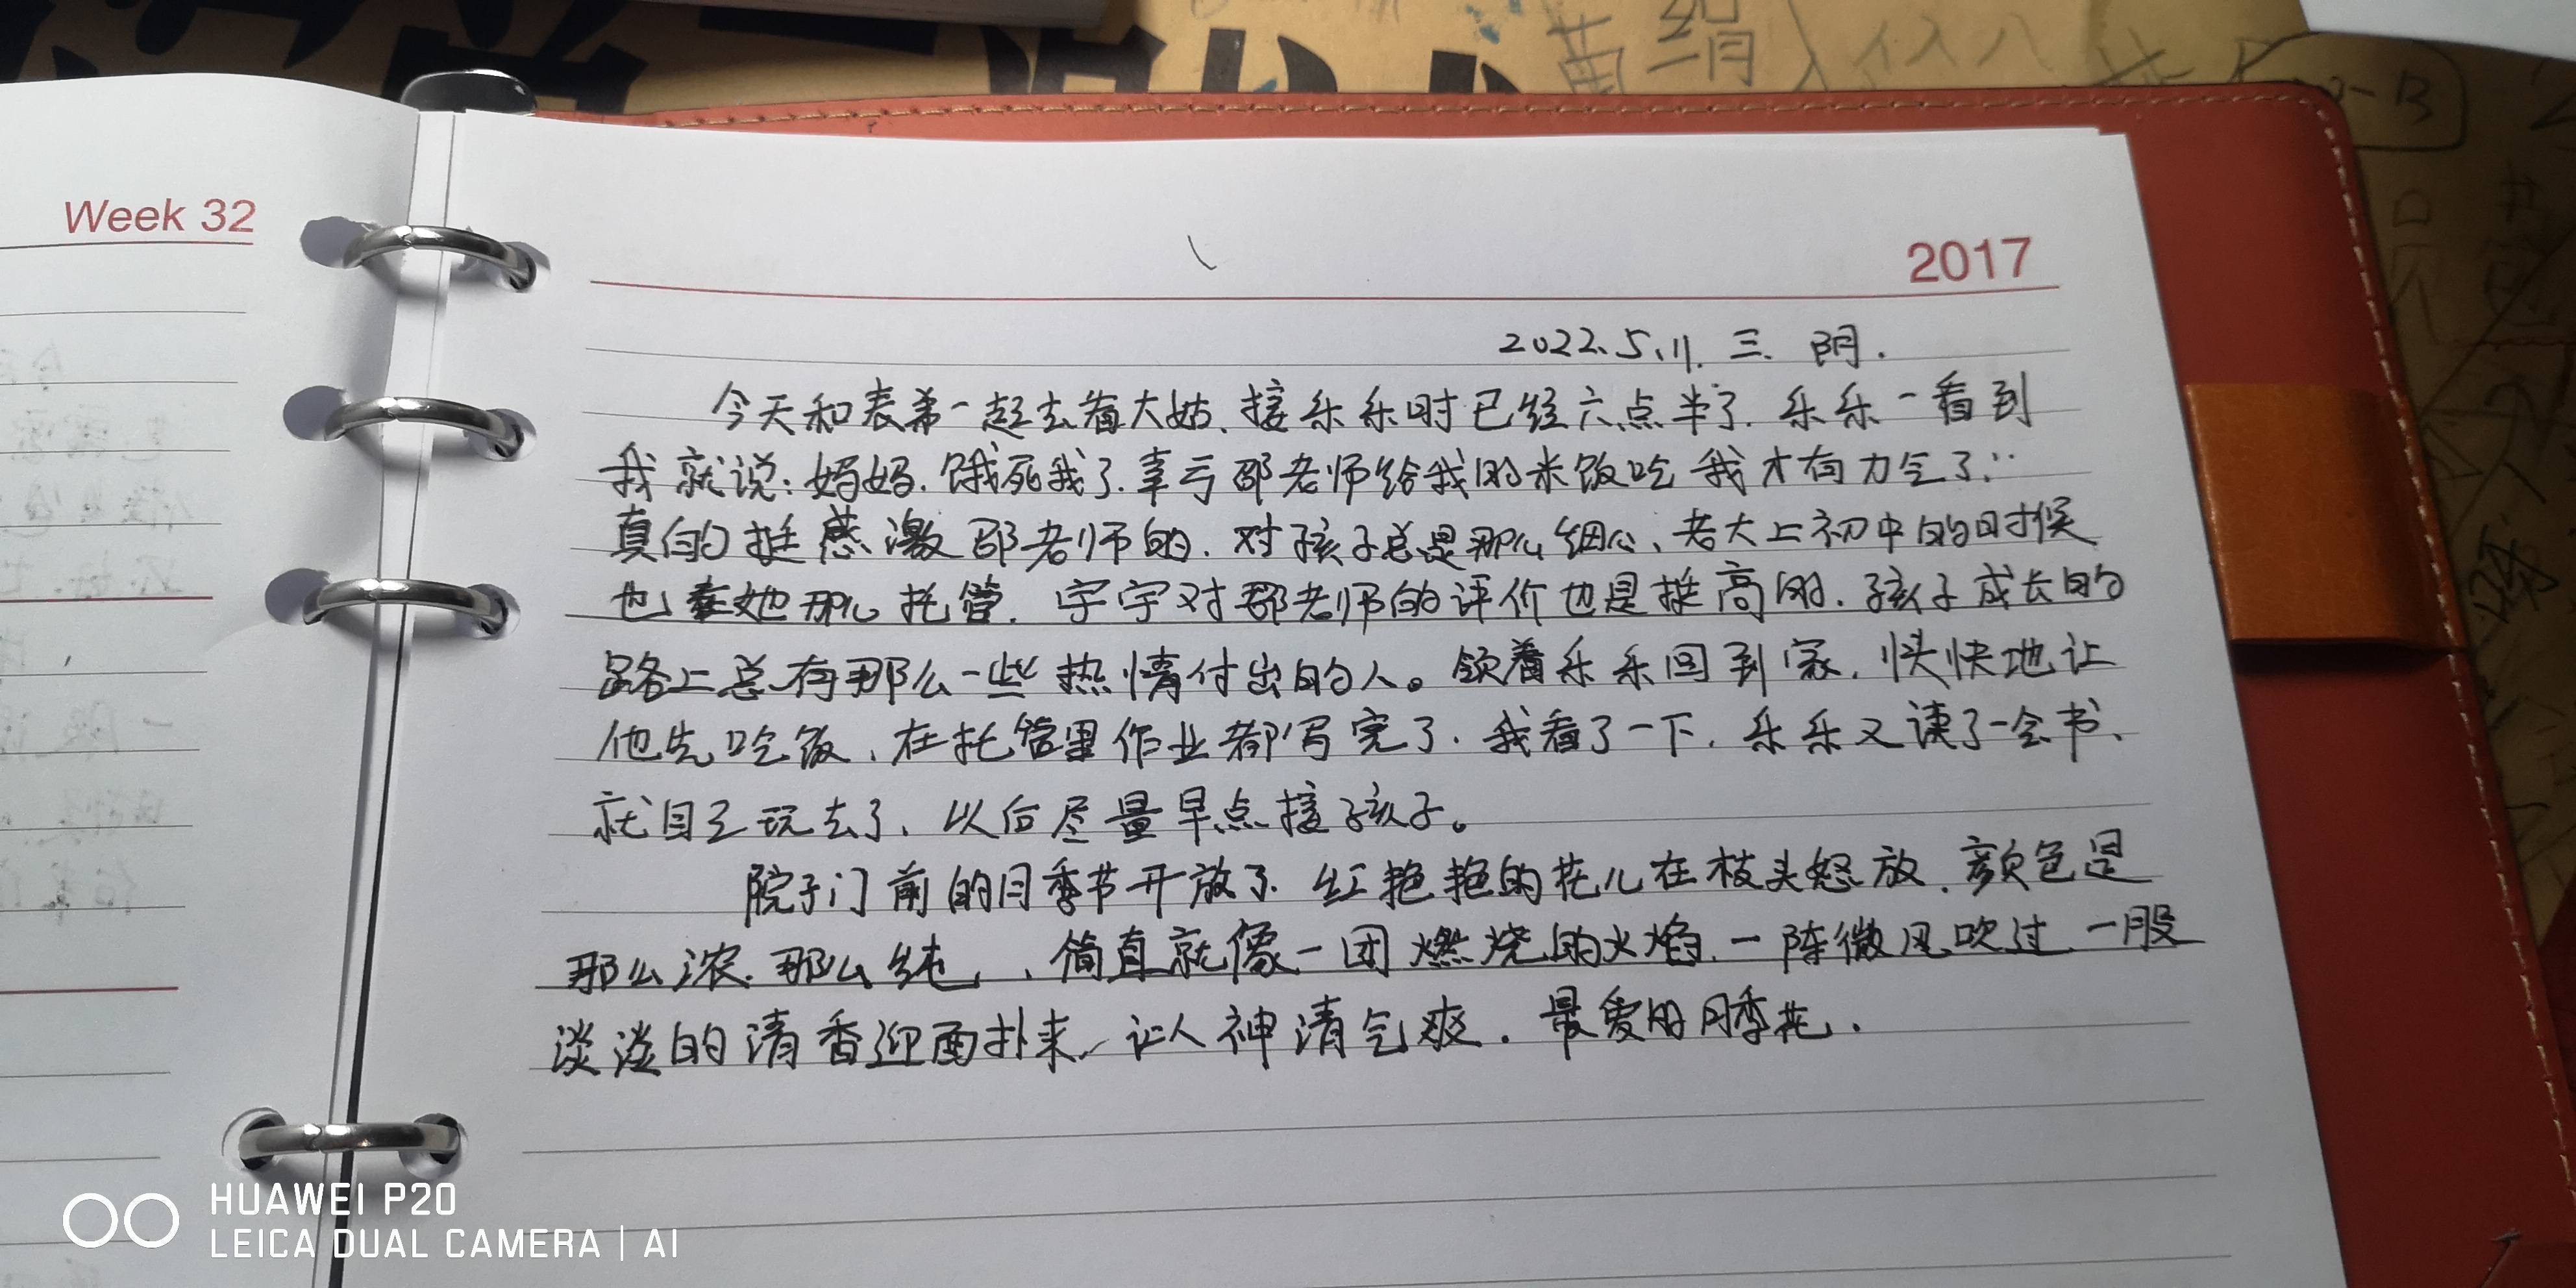 Week 32
2017
2022.5.11. 三. 阴.
今天和表弟一起去看大姑、接乐乐时已经六点半了. 乐乐一看到
我就说：妈妈. 饿死我了. 幸亏邵老师给我的米饭吃 我才有力气了."
真的挺感激邵老师的. 对孩子总是那么细心、老大上初中的时候
也在她那儿托管. 宇宇对邵老师的评价也是挺高的. 孩子成长的
路上总有那么一些热情付出的人。领着乐乐回到家. 快快地让
他先吃饭、在托管里作业都写完了. 我看了一下. 乐乐又读了一会书、
就自己玩去了、以后尽量早点接孩子。
院子门前的月季节开放了. 红艳艳的花儿在枝头怒放. 颜色是
那么浓. 那么纯、、简直就像一团燃烧的火焰. 一阵微风吹过 一股
淡淡的清香迎面扑来, 让人神清气爽. 最爱的月季花.
HUAWEI P20
LEICA DUAL CAMERA | AI